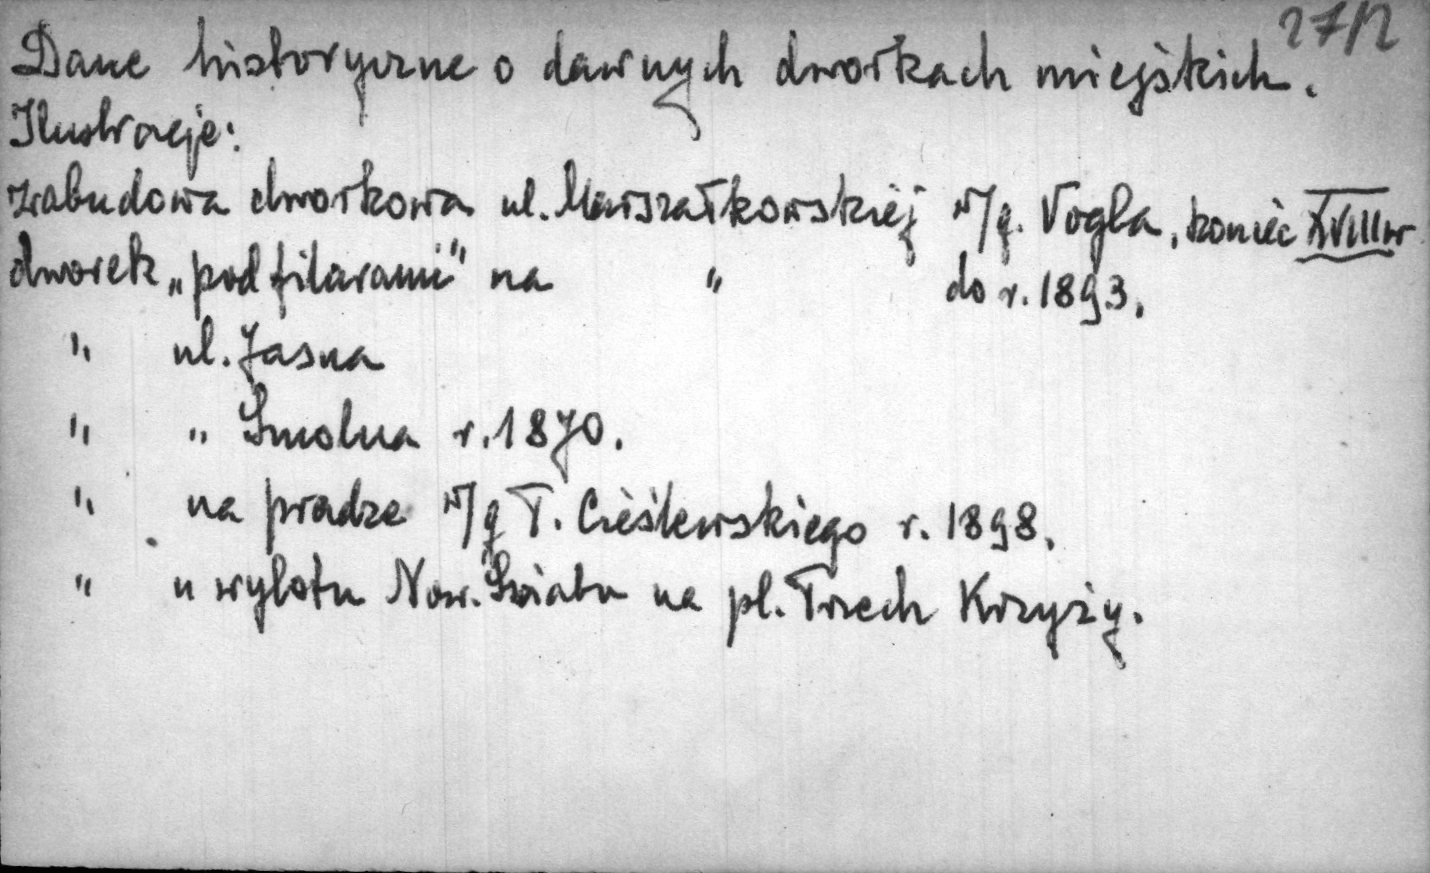 27/2
Dane historyczne o dawnych dworkach miejskich.
Ilustracje:
zabudowa dworkowa ul. Marszałkowskiej w/g. Vogla, koniec XVIII w
dworek „pod filarami" na " do r. 1893.
" ul. Jasna
" " Smolna r. 1870.
" na pradze w/g T. Cieślewskiego r. 1898.
" u wylotu Now. Świata na pl. Trzech Krzyży.